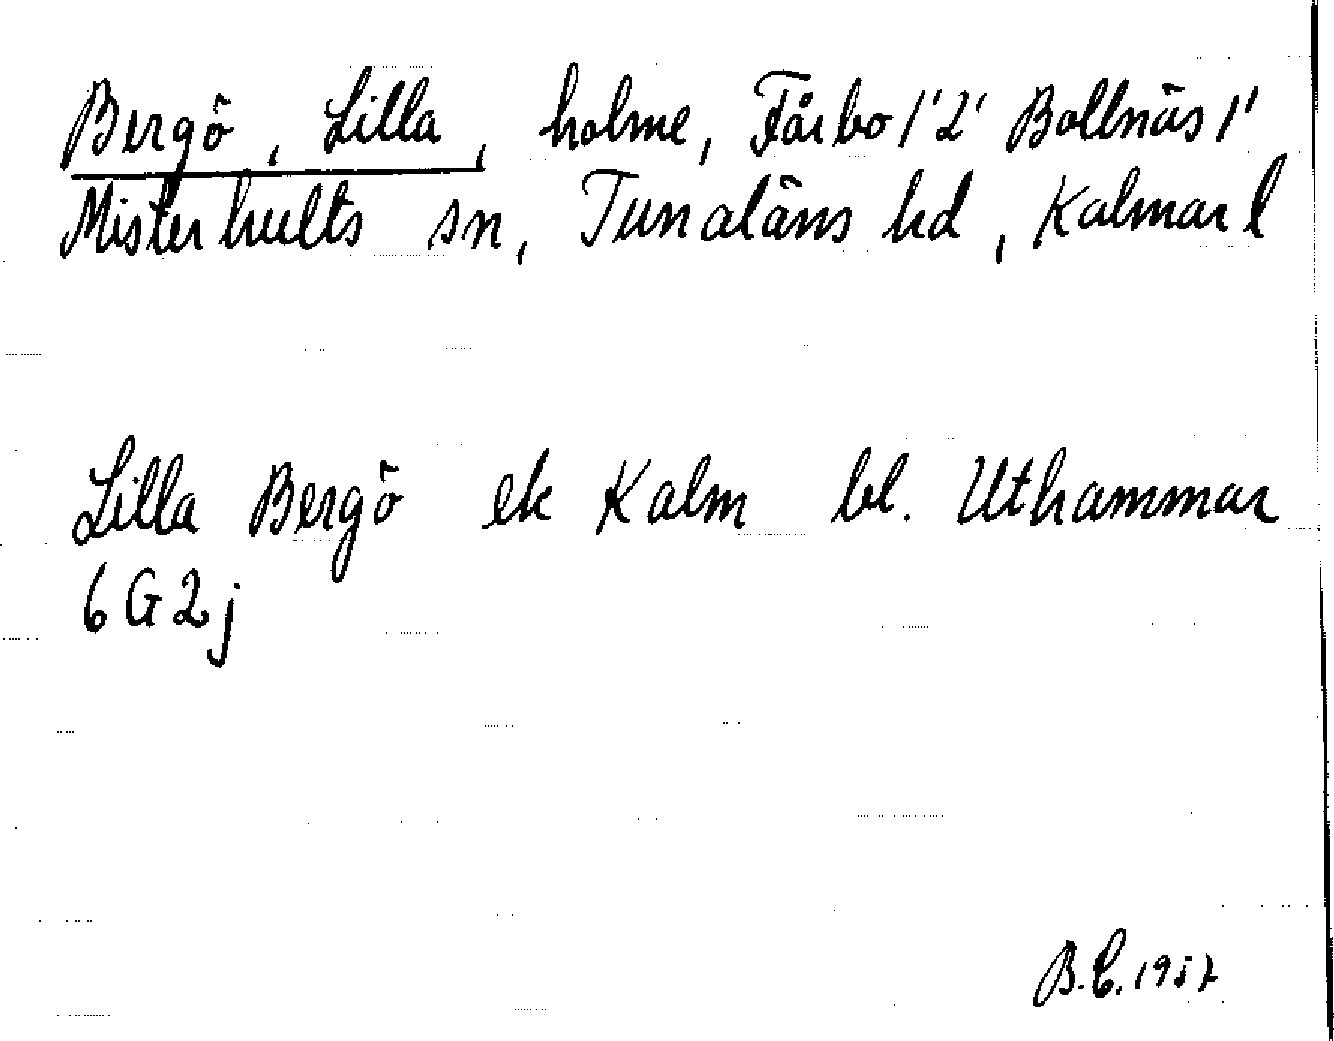 Bergö, Lilla, holme, Fårbo 1'2' Bollnäs 1'
Misterhults sn, Tunaläns hd, Kalmar l
Lilla Bergö ek Kalm bl. Uthammar
6G2j
B.C. 1957